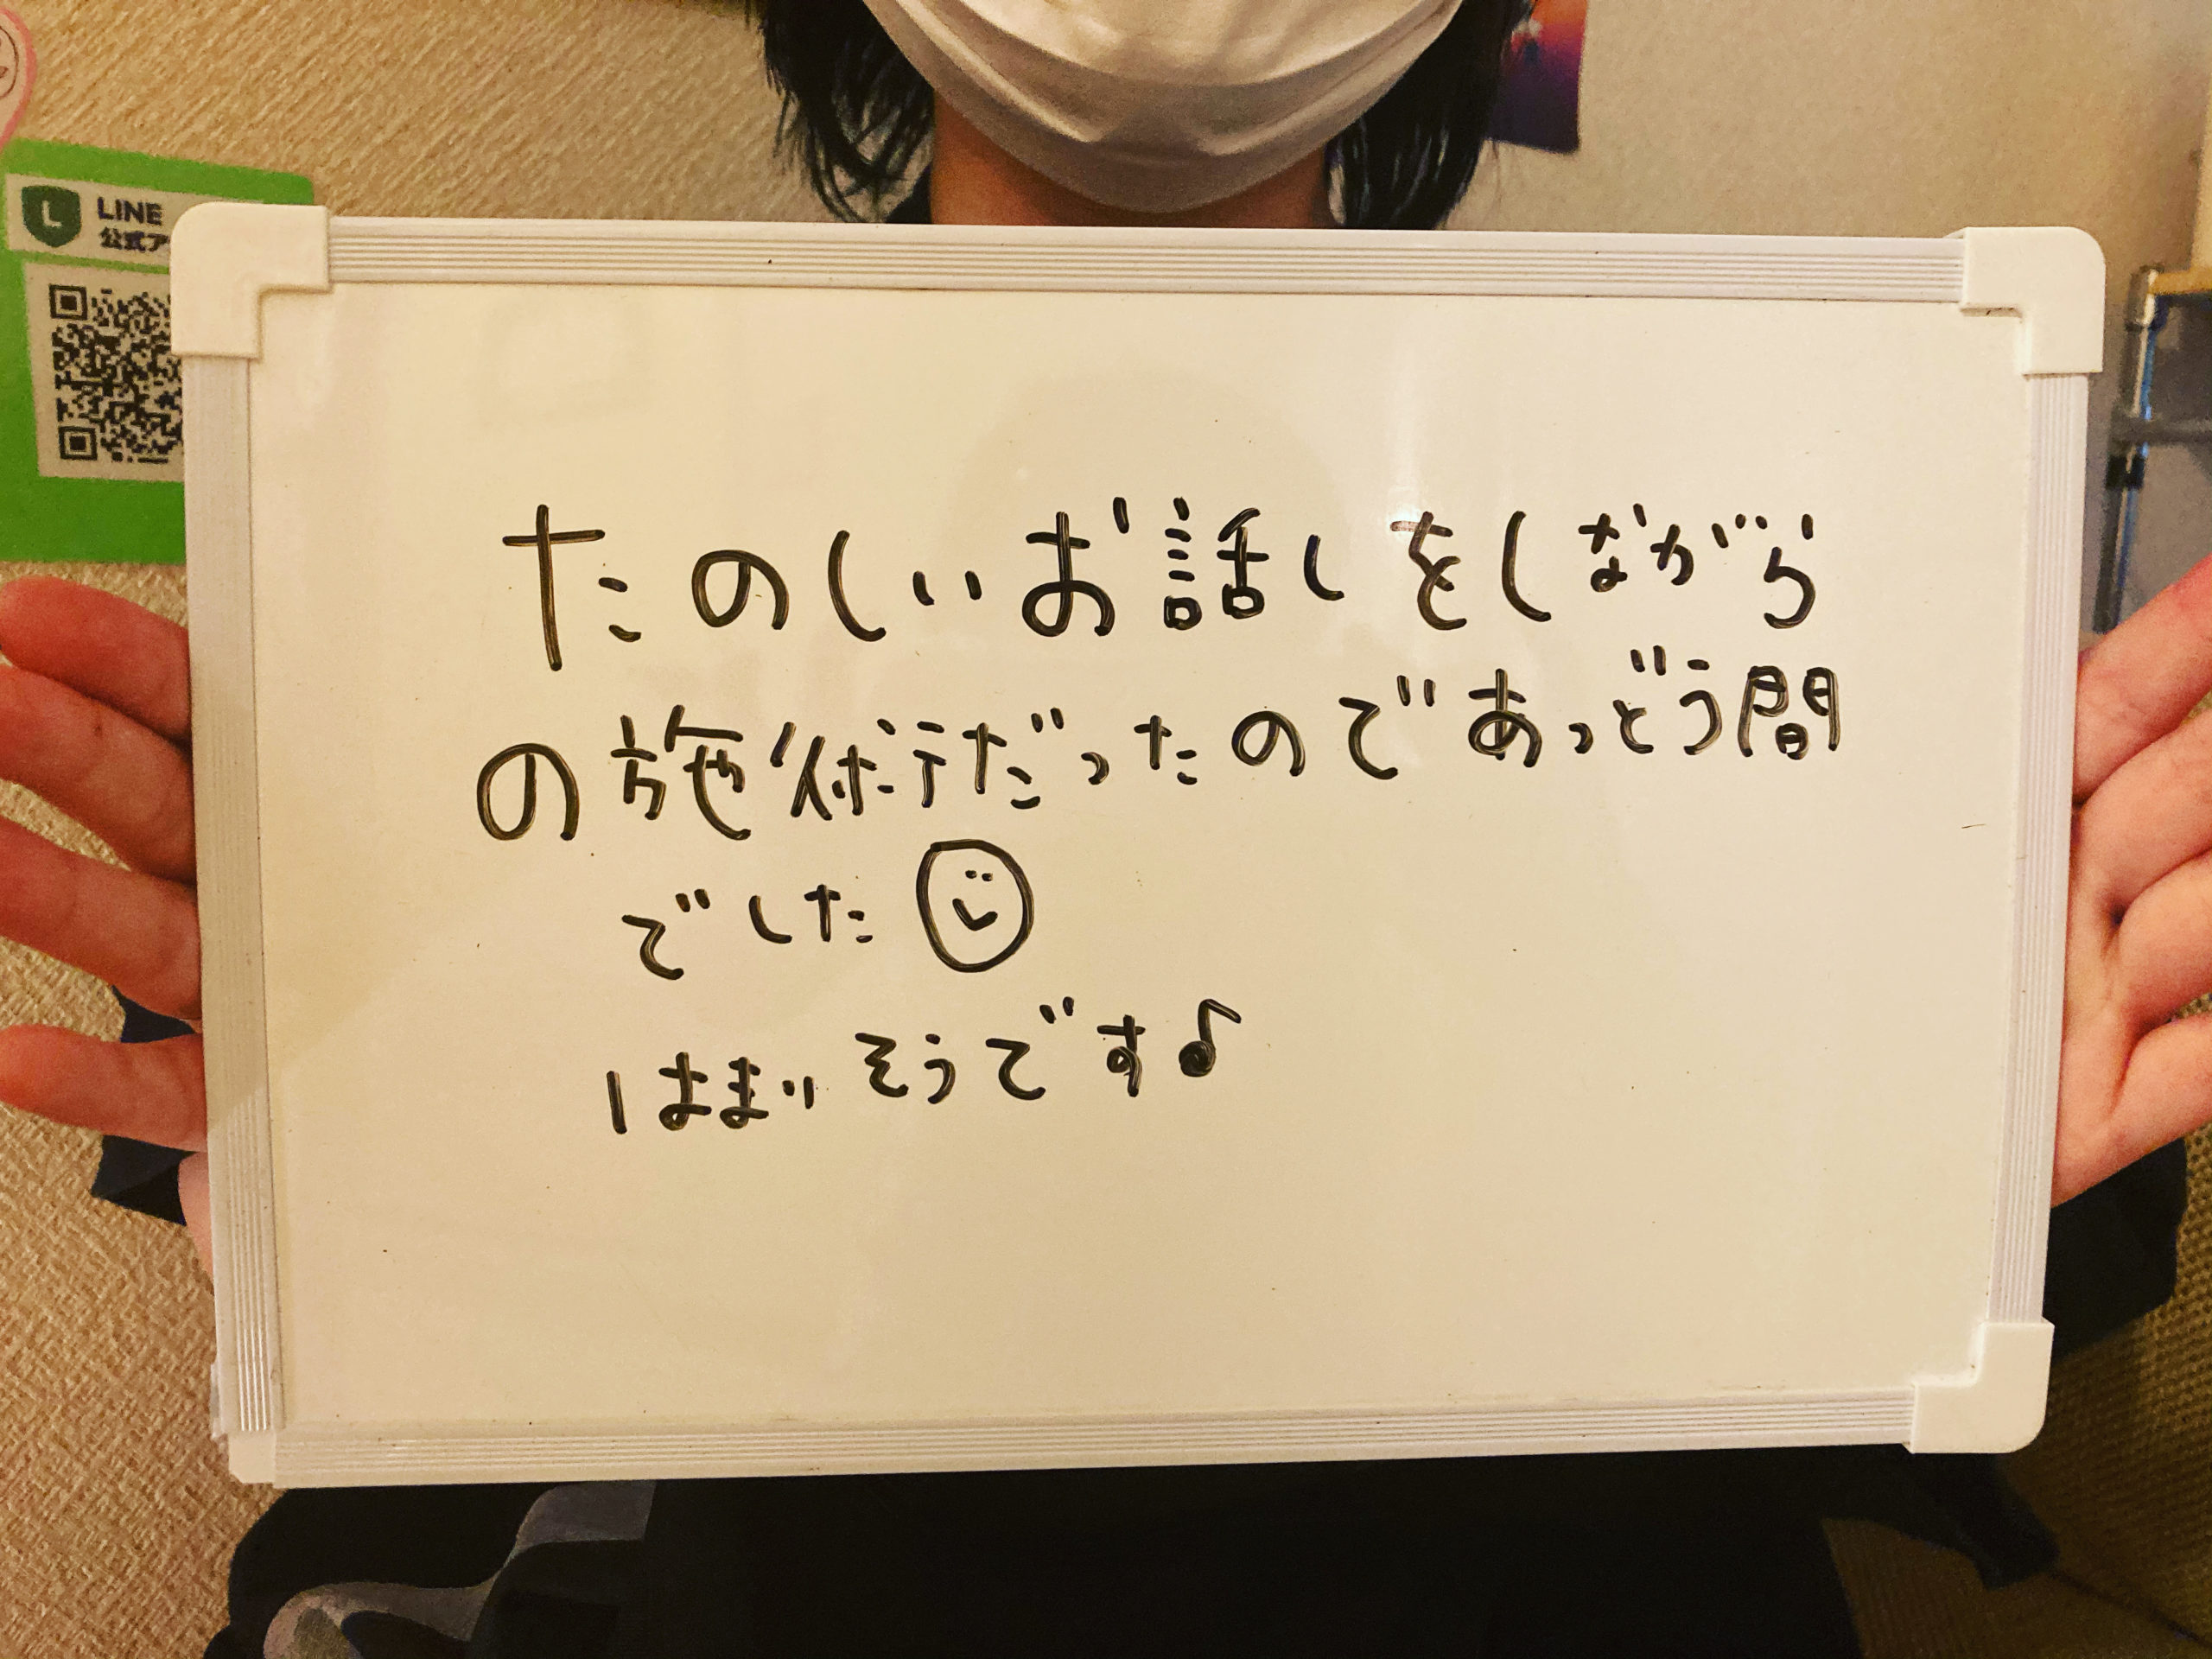 L LINE
公式ア
たのしいお話しをしながら
の施術だったのであっどう間
でした
はまりそうです♪